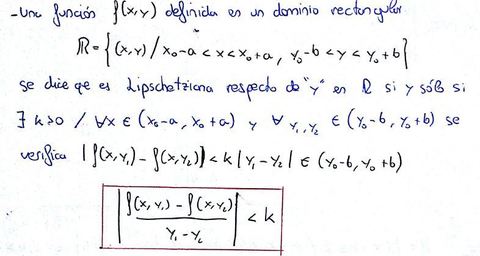 - Una función f(x,y) definida en un dominio rectangular
R = {(x,y) / x₀-a < x < x₀+a, y₀-b < y < y₀+b}
se dice qe es Lipschetziana respecto de "y" en R si y sólo si
∃ k>0 / ∀x ∈ (x₀-a, x₀+a) y ∀ y₁,y₂ ∈ (y₀-b, y₀+b) se
verifica |f(x,y₁) - f(x,y₂)| < k |y₁-y₂| ∈ (y₀-b, y₀+b)
| f(x,y₁) - f(x,y₂) / y₁-y₂ | < k